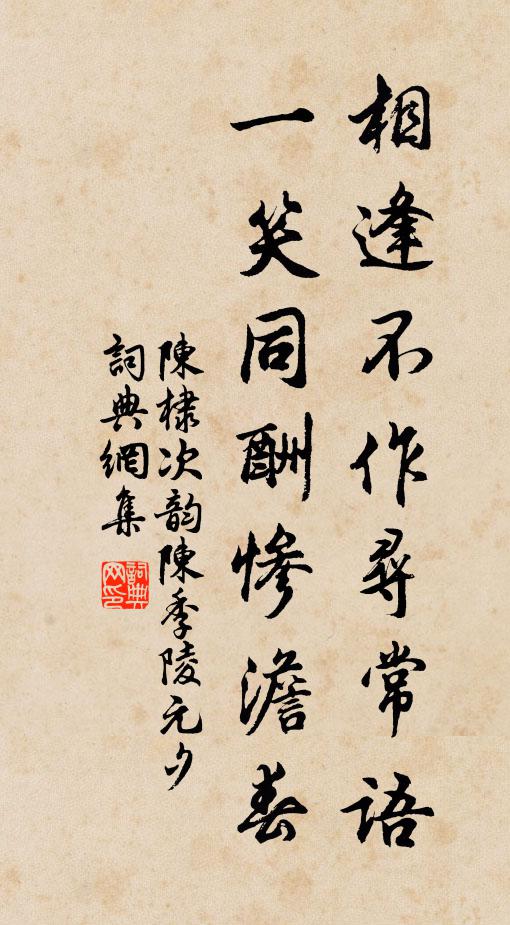 相逢不作尋常語
一笑同酬慘澹春
陳棣次韵陳季陵元夕
詞典網集
詞典网印